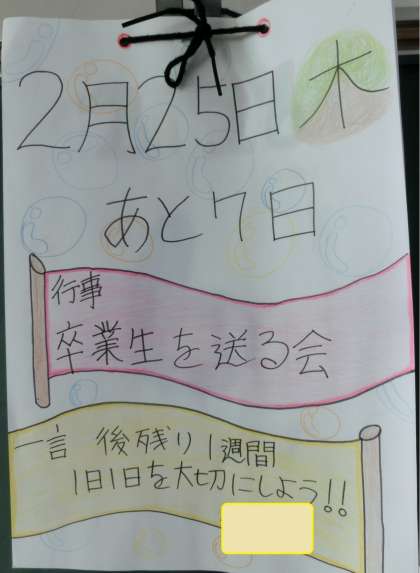 2月25日 木
あと7日
行事
卒業生を送る会
一言 後残り1週間
1日1日を大切にしよう!!